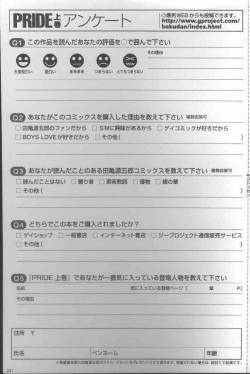 PRIDE上巻アンケート
◎悪男WEBからも投稿できます。
http://www.gproject.com/
bakudan/index.html
Q1 この作品を読んだあなたの評価を○で囲んで下さい
その理由
大変面白い 面白い まあまあ つまらない とてもつまらない
Q2 あなたがこのコミックスを購入した理由を教えて下さい 複数回答可
□田亀源五郎のファンだから □SMに興味があるから □ゲイコミックが好きだから
□BOYS LOVEが好きだから □その他(
Q3 あなたが読んだことのある田亀源五郎コミックスを教えて下さい 複数回答可
□読んだことはない □嬲り者 □柔術教師 □獲物 □銀の華
□その他(
Q4 どちらでこの本をご購入されましたか?
□ゲイショップ □一般書店 □インターネット書店 □ジープロジェクト通信販売サービス
□その他(
Q5 『PRIDE 上巻』であなたが一番気に入っている登場人物を教えて下さい
名前 気に入っている登場ページ [ 章 P]
その理由
住所 〒
氏名 ペンネーム 年齢